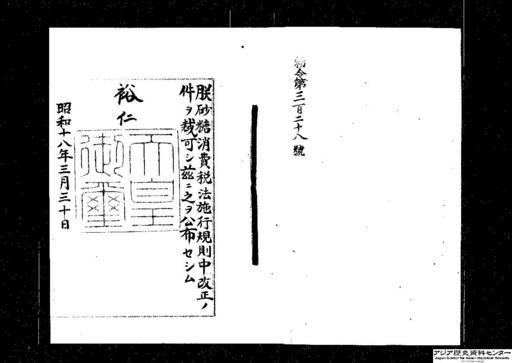 勅令第三百二十八號
朕砂糖消費税法施行規則中改正ノ
件ヲ裁可シ茲ニ之ヲ公布セシム
裕仁
天皇
御璽
昭和十八年三月三十日
アジア歴史資料センター
Japan Center for Asian Historical Records